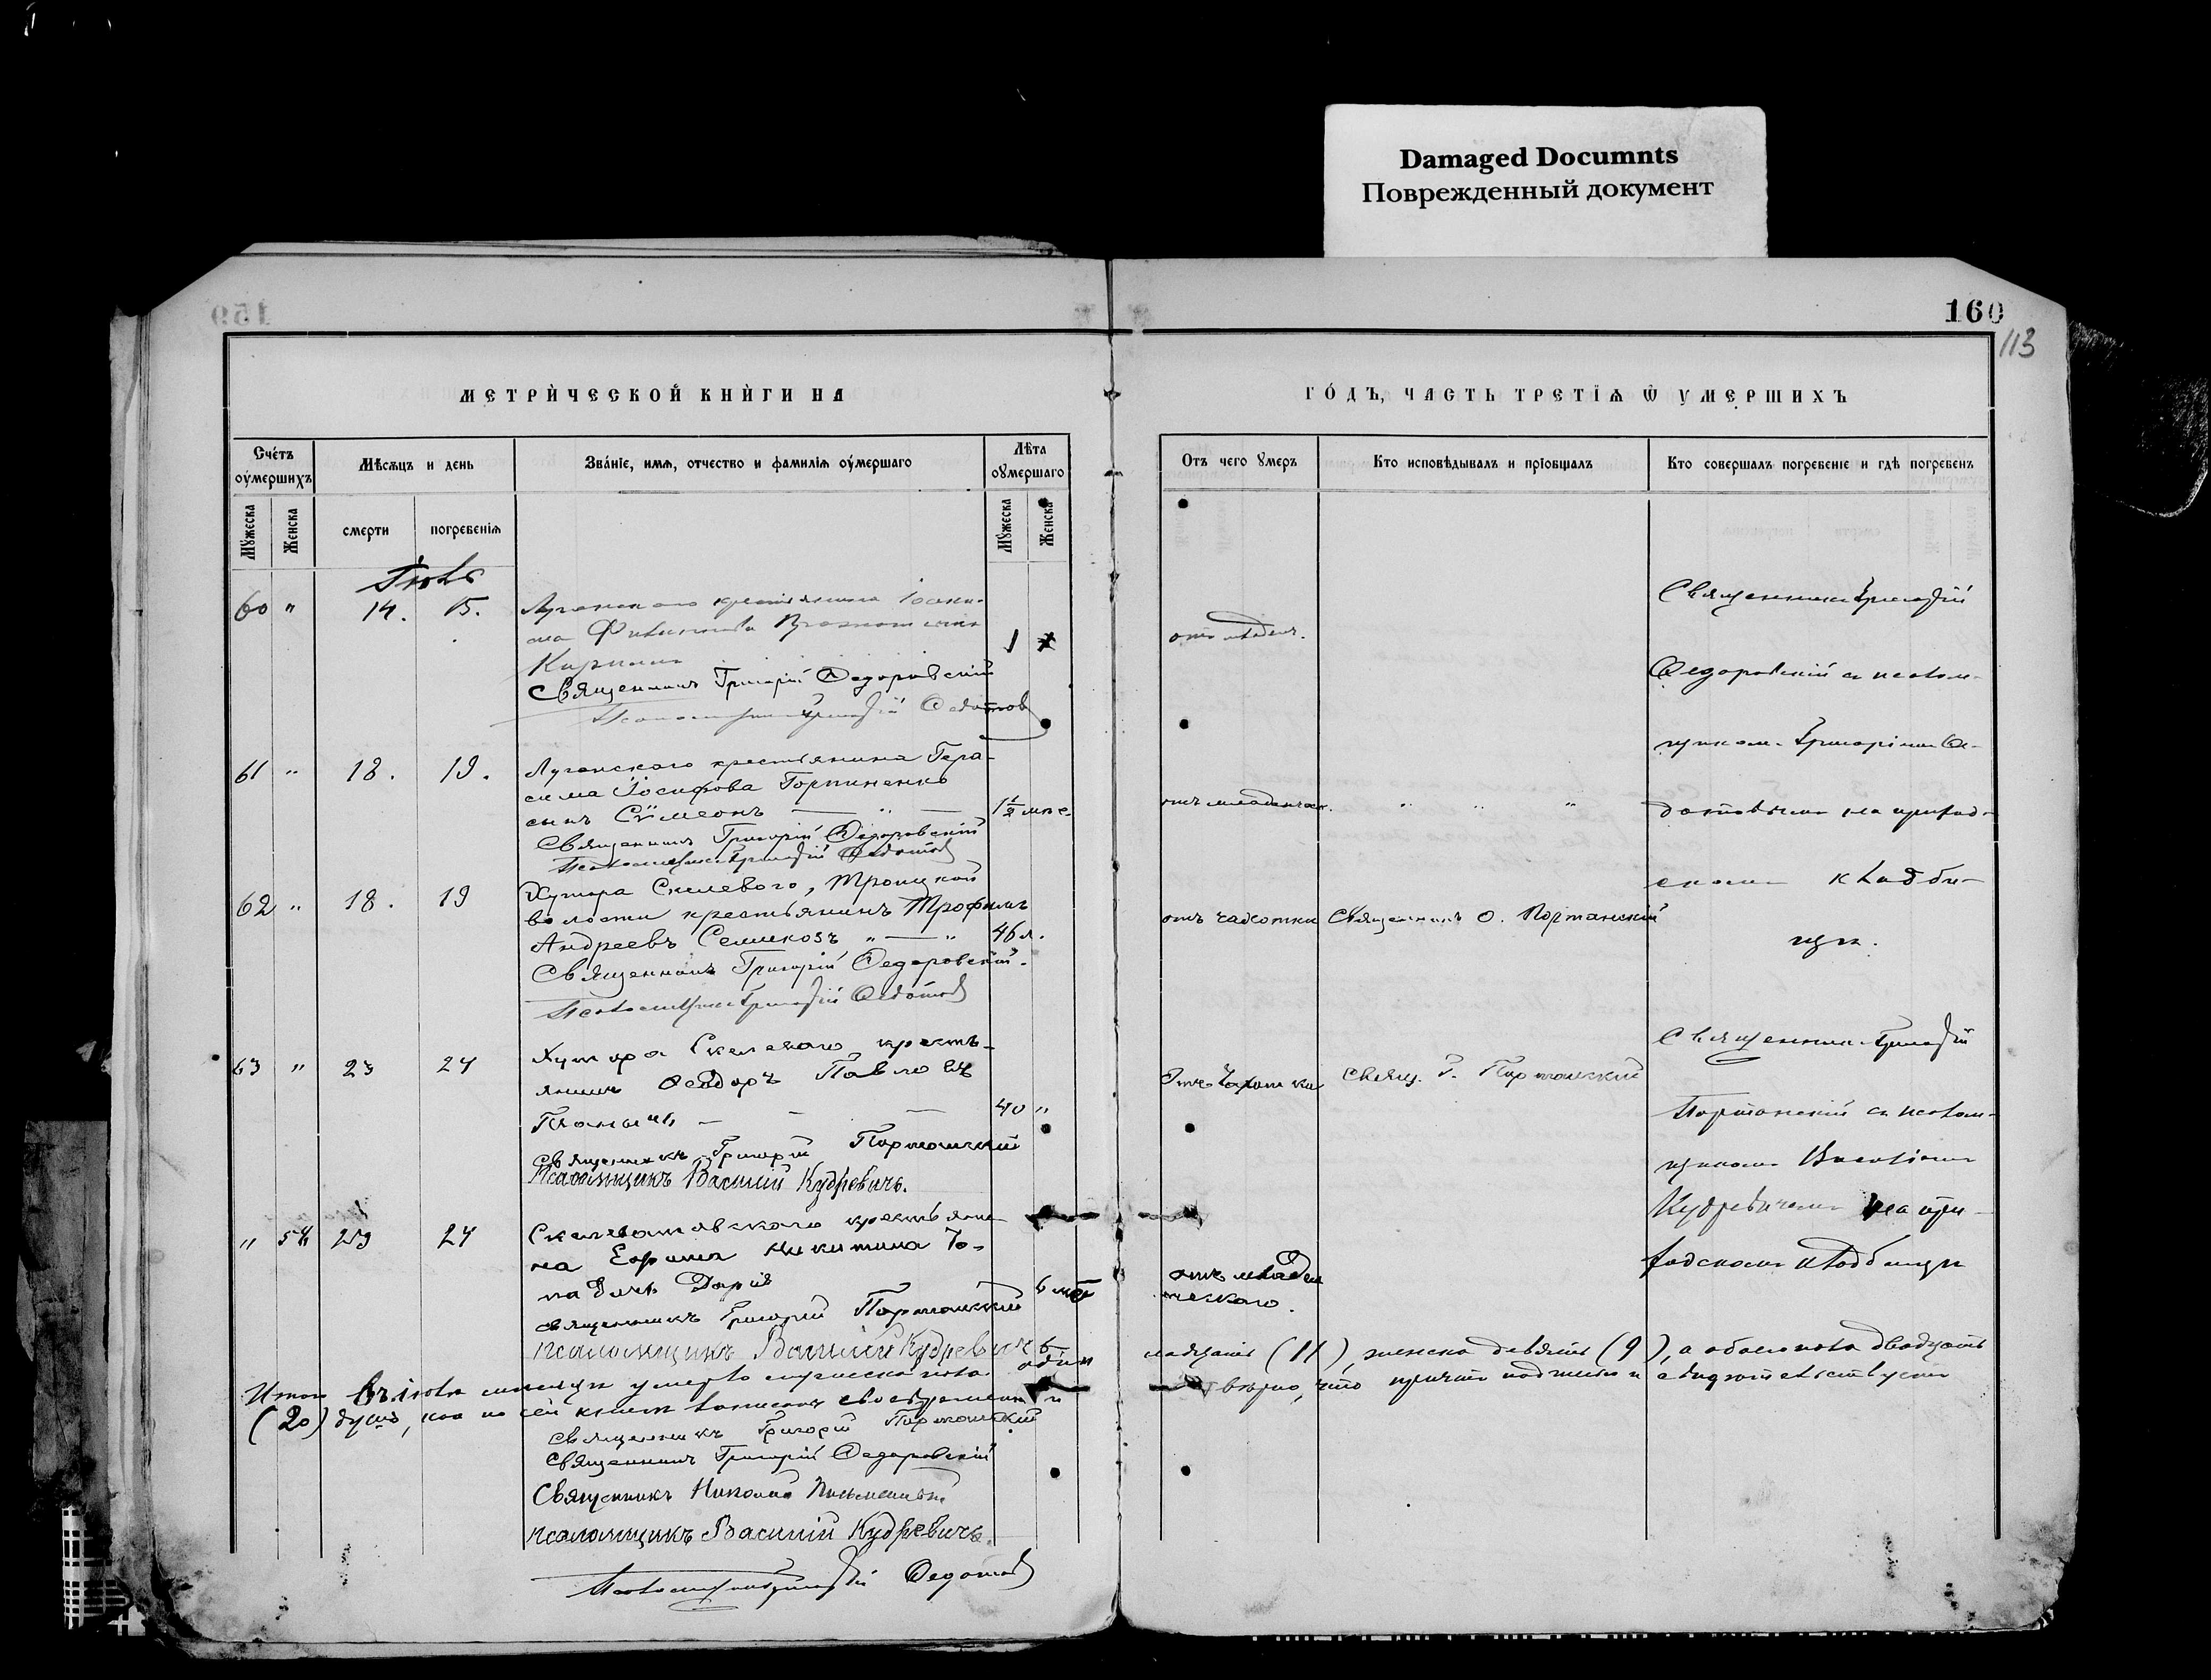 Damaged Documnts
Поврежденный документ
160
113
159
МЕТРИЧЕСКОЙ КНИГИ НА
ГОДЪ, ЧАСТЬ ТРЕТІЯ Ѿ УМЕРШИХЪ
Счетъ умершихъ
Мѣсяцъ и день
Званіе, имя, отчество и фамилія умершаго
Лѣта умершаго
Мужеска
Женска
смерти
погребенія
Мужеска
Женска
Отъ чего умеръ
Кто исповѣдывалъ и пріобщалъ
Кто совершалъ погребеніе и гдѣ погребенъ
Іюль
60 " 14. 15.
Луганского крестьянина Іоаки-
ма Филиппова
Священникъ Григорій Федоровскій
Псаломщикъ Григорій Федотов
1
отъ младен.
Священникъ Григорій
Федоровскій съ псалом-
щикомъ Григоріемъ Фе-
дотовымъ на приход-
скомъ кладби-
щѣ.
61 " 18. 19.
Луганского крестьянина Гера-
сима Іосифова Горпиненко
сынъ Сѵмеонъ — " —
Священникъ Григорій Федоровскій
Псаломщикъ Григорій Федотов
1½ мѣс.
отъ младенческ. " " "
62 " 18. 19
Хутора Скелевого, Троицкой
волости крестьянинъ Трофимъ
Андреевъ Семикозъ " — "
Священникъ Григорій Федоровскій.
Псаломщикъ Григорій Федотов
46 л.
отъ чахотки
Священникъ О. Портанскій
63 " 23 24
Хутора Скелевого кресть-
янинъ Феодоръ Павловъ
Священникъ Григорій Портанский
Псаломщикъ Василій Кудревичъ.
40 "
Отъ Чахотки
Свящ. Г. Портанский
Священникъ Григорій
Портанскій съ псалом-
щикомъ Василіемъ
Кудревичемъ на при-
ходскомъ кладбищѣ
" 54 23 24
крестьяни-
на Ефима Никитина
Дарія
священникъ Григорій Портанский
псаломщикъ Василій Кудревичъ
6 мѣс
отъ младен
ческаго.
Итого въ іюлѣ мѣсяцѣ умерло мужеска пола одін
надцать (11), женска девять (9), а обоего пола двадцать
(20) душъ, кои по сей книгѣ записаны своевременно и
вѣрно, что причтъ подписью и свидѣтельствуетъ
священникъ Григорій Портанский
Священникъ Григорій Федоровскій
Священникъ Николай
псаломщикъ Василій Кудревичъ.
Псаломщикъ Григорій Федотов